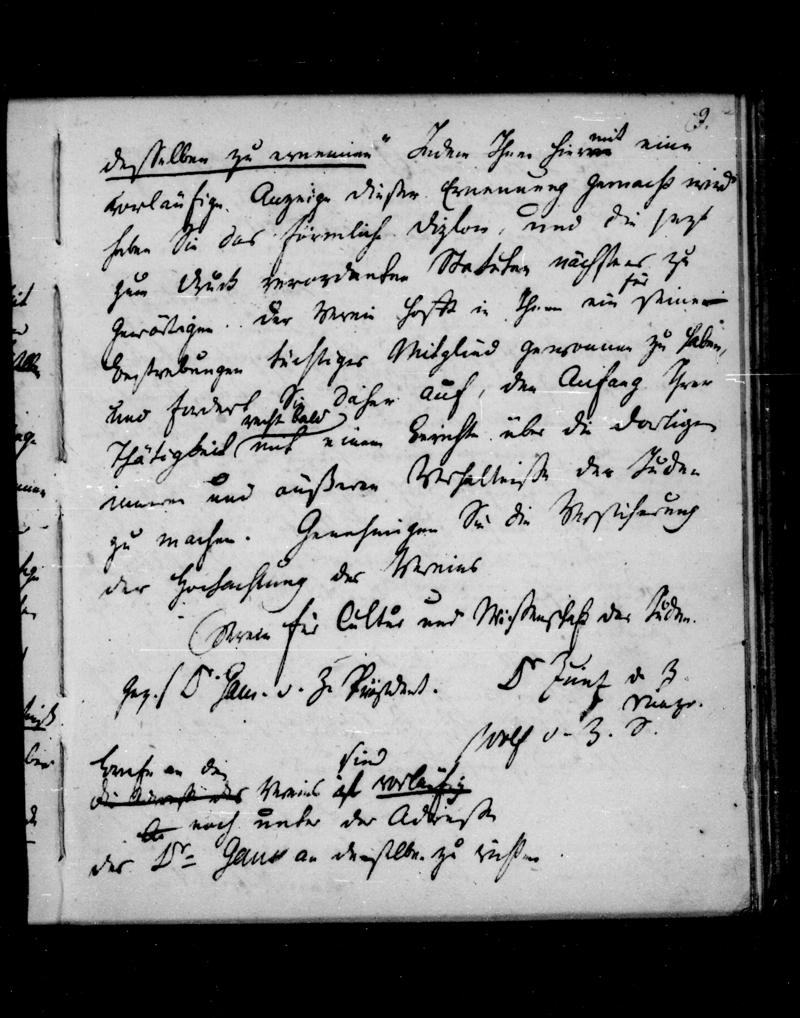 9.
desselben zu ernennen" Indem Ihnen hiermit eine
vorläufige Anzeige dieser Ernennung gemacht wird
haben Sie das förmliche Diplom, und die jetzt
zum Druck verordneten Statuten nächstens zu
gewärtigen. Der Verein hofft in Ihnen ein für seine
Bestrebungen tüchtiges Mitglied gewonnen zu haben,
und fordert Sie daher auf, den Anfang Ihrer
recht bald
Thätigkeit mit einem Berichte über die dortigen
inneren und äußeren Verhältnisse der Juden
zu machen. Genehmigen Sie die Versicherung
der Hochachtung des Vereins
Verein für Cultur und Wissenschaft der Juden.
gez. Dr. Gans. d. Z. Präsident. Dr Zunz d. Z.
Wolf d. Z. S.
Briefe an den
die Adresse des Vereins ist sind vorläufig
noch unter der Adresse
des Dr Gans an denselben zu richten.